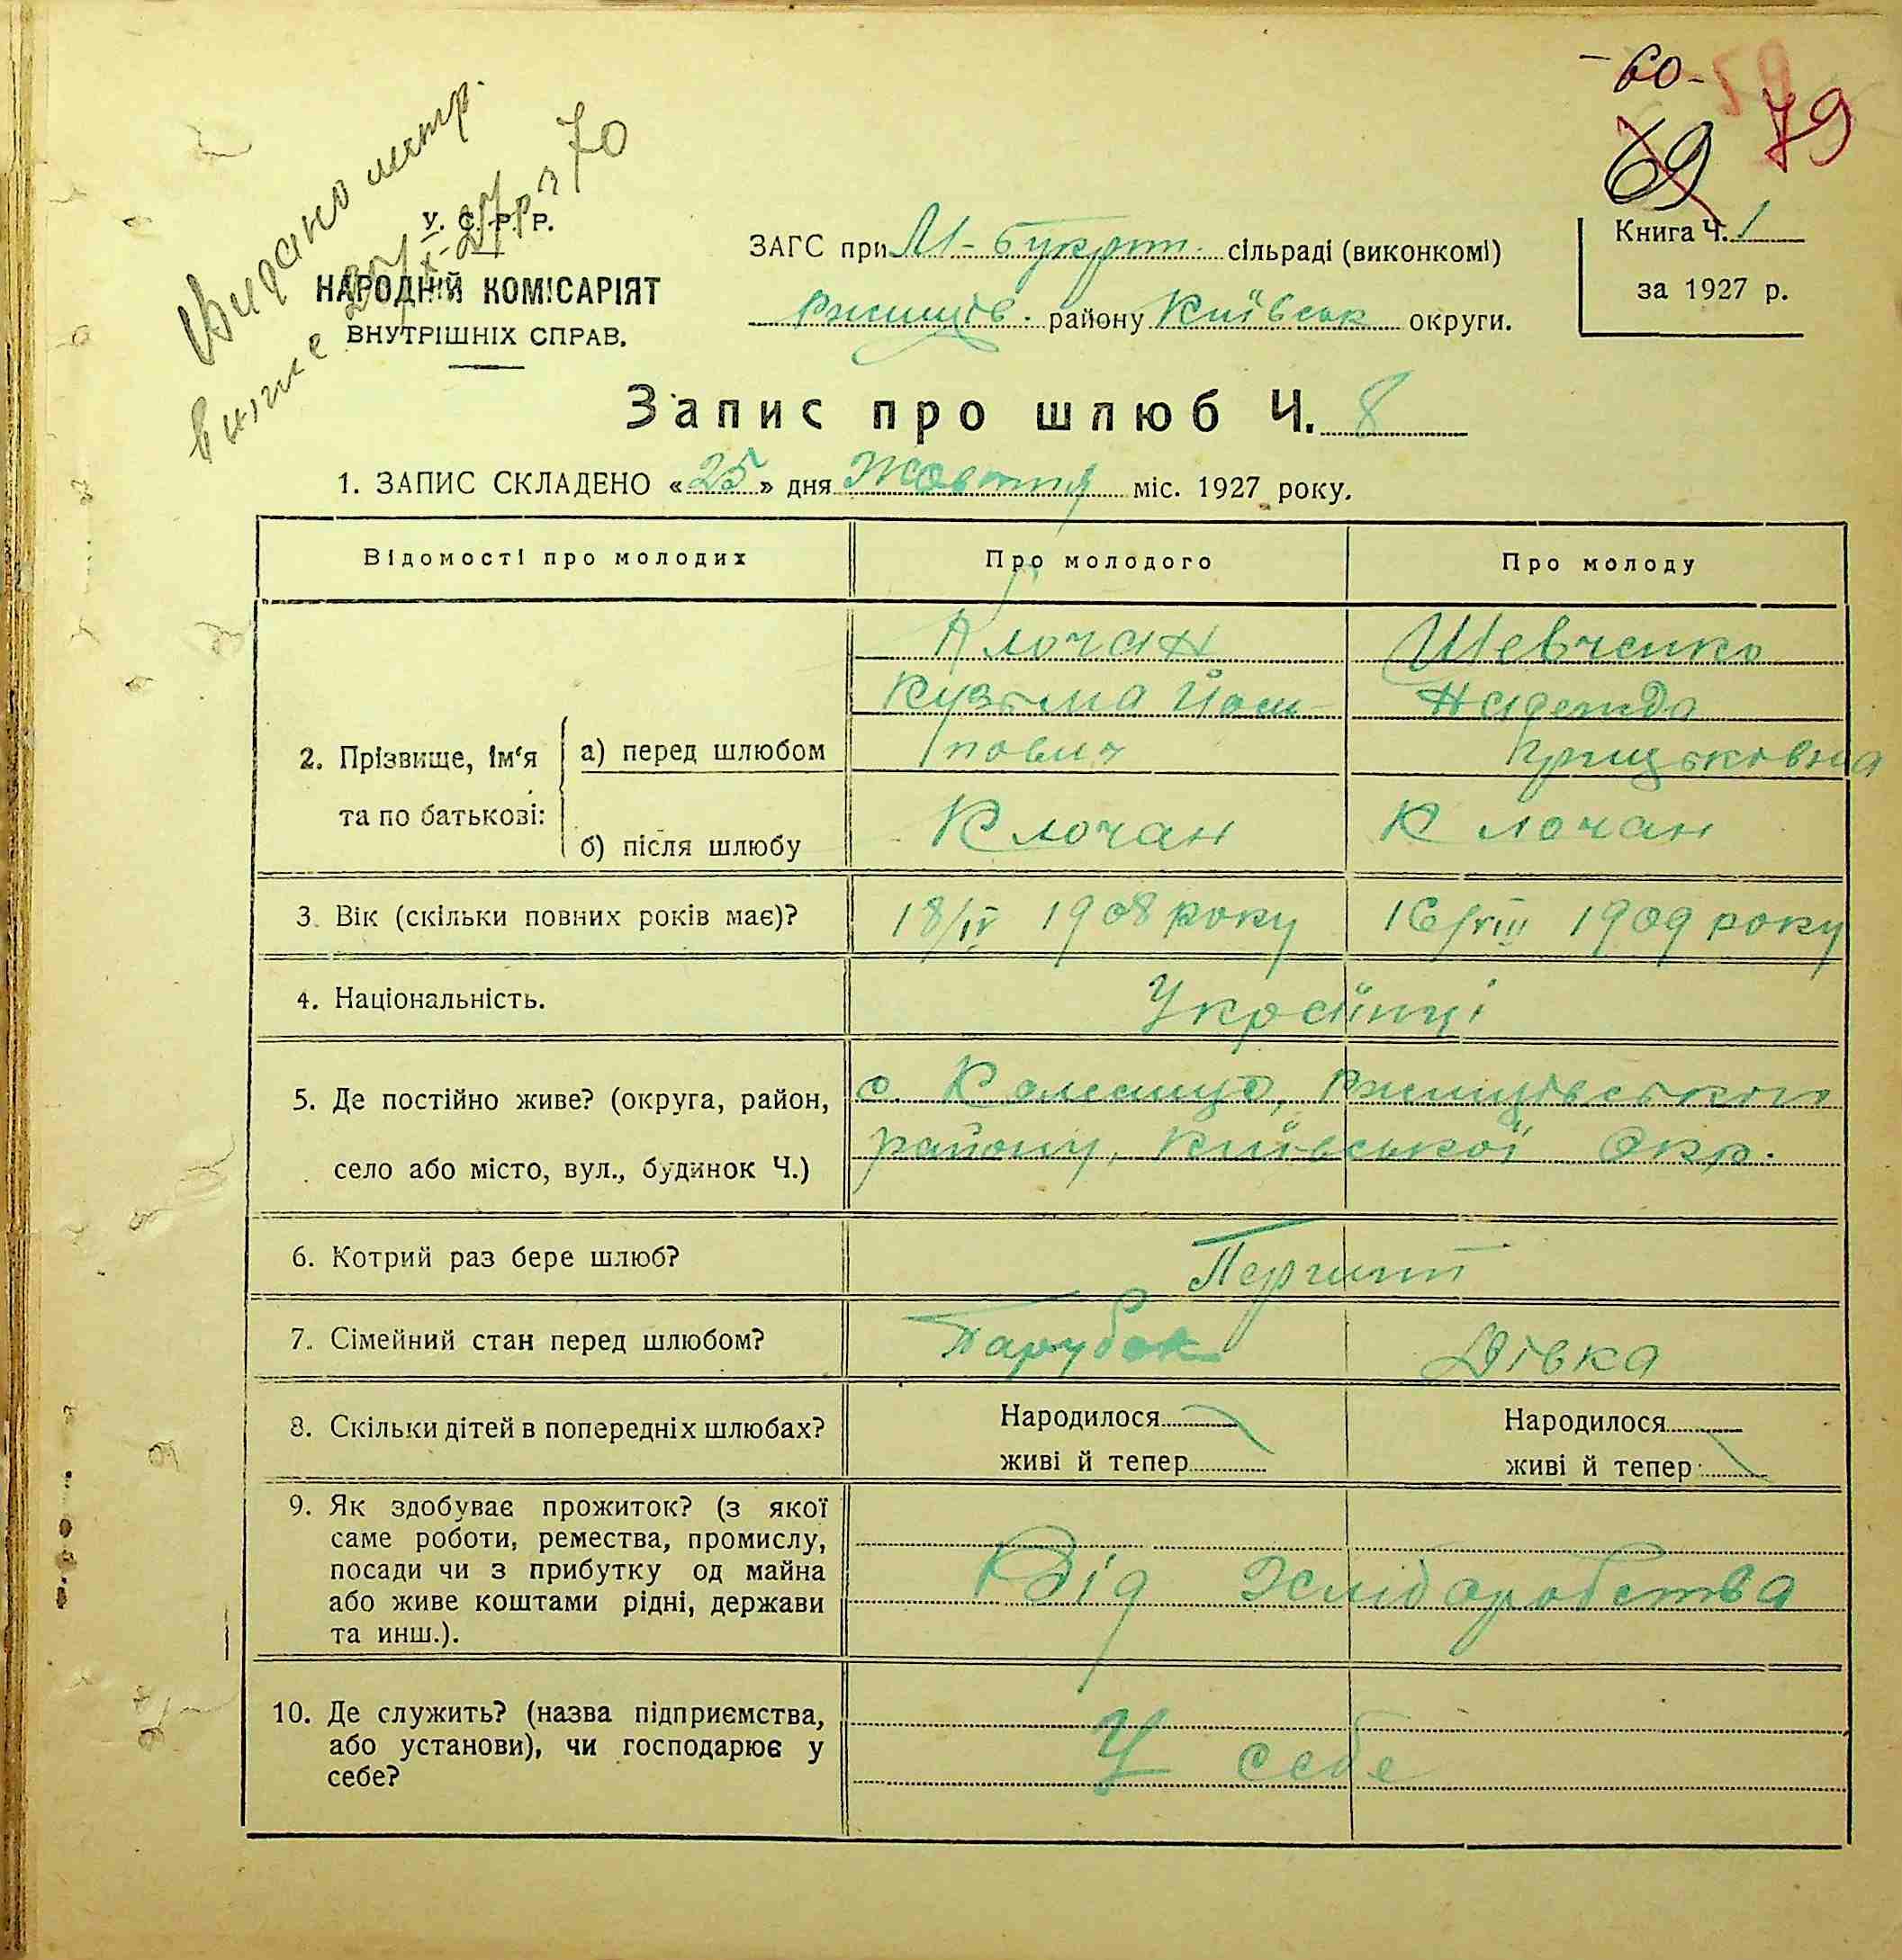 - 60 - 59
69 79
Видано метр.
витяг 25/X-27 р. з 70
У. С. Р. Р.
НАРОДНІЙ КОМІСАРІЯТ
ВНУТРІШНІХ СПРАВ.
ЗАГС при М-Букрин. сільраді (виконкомі)
Ржищів. району Київськ округи.
Книга Ч. 1
за 1927 р.
Запис про шлюб Ч. 8
1. ЗАПИС СКЛАДЕНО «25» дня Жовтня міс. 1927 року.
Відомості про молодих Про молодого Про молоду
2. Прізвище, ім'я та по батькові:
а) перед шлюбом
Клочан
Кузьма Йоси-
пович
Шевченко
Надежда
Грицьковна
б) після шлюбу Клочан Клочан
3. Вік (скільки повних років має)? 18/IV 1908 року 16/VIII 1909 року
4. Національність. Українці
5. Де постійно живе? (округа, район,
село або місто, вул., будинок Ч.)
с. Колесище, Ржищівського
району, Київської Окр.
6. Котрий раз бере шлюб? Перший
7. Сімейний стан перед шлюбом? Парубок Дівка
8. Скільки дітей в попередніх шлюбах? Народилося Народилося
живі й тепер живі й тепер
9. Як здобуває прожиток? (з якої
саме роботи, ремества, промислу,
посади чи з прибутку од майна
або живе коштами рідні, держави
та инш.).
Від хліборобства
10. Де служить? (назва підприємства,
або установи), чи господарює у
себе?
У себе